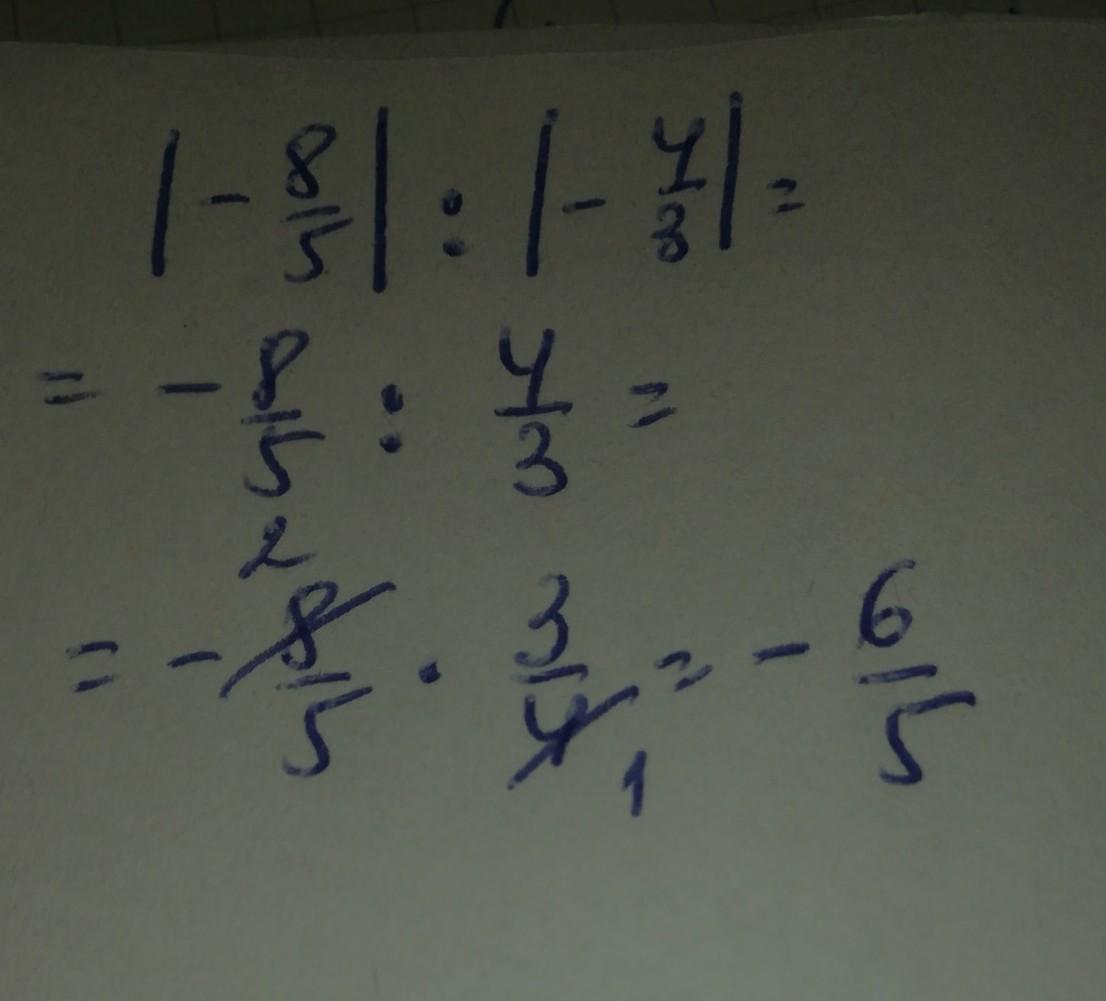 |-8/5| : |-4/3| =
= -8/5 : 4/3 =
2
= -8/5 · 3/4 = -6/5
1